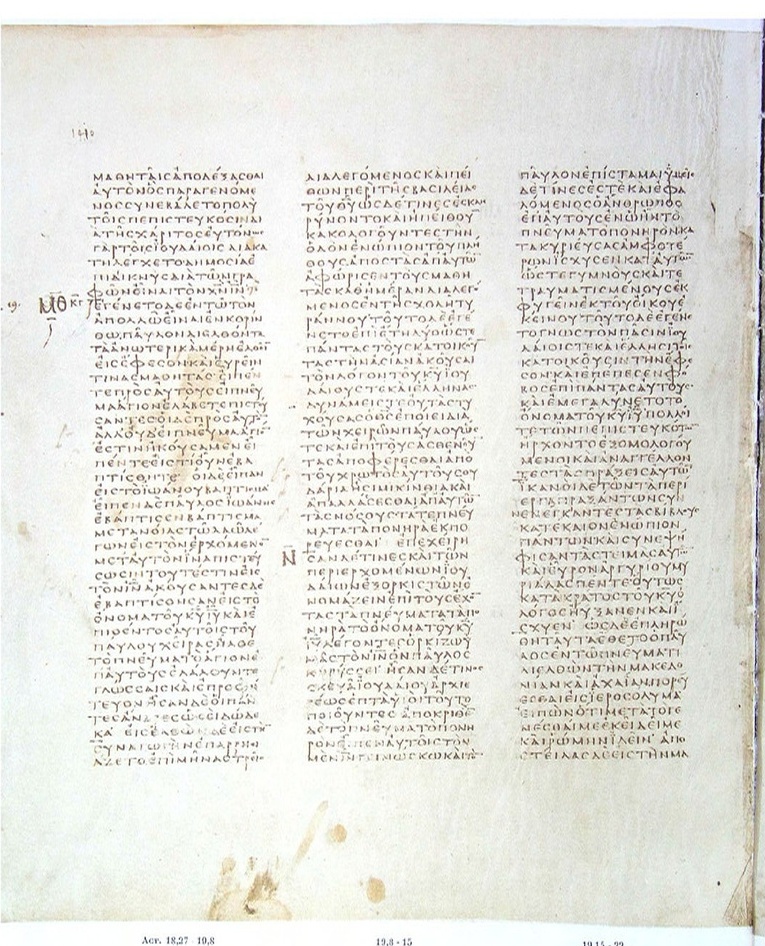 1410
ΜΑΘΗΤΑΙΣ ΑΠΟΔΕΞΑΣΘΑΙ
ΑΥΤΟΝ ΟΣ ΠΑΡΑΓΕΝΟΜΕ
ΝΟΣ ΣΥΝΕΒΑΛΕΤΟ ΠΟΛΥ
ΤΟΙΣ ΠΕΠΙΣΤΕΥΚΟΣΙΝ ΔΙ
Α ΤΗΣ ΧΑΡΙΤΟΣ ΕΥΤΟΝΩΣ
ΓΑΡ ΤΟΙΣ ΙΟΥΔΑΙΟΙΣ ΔΙΑΚΑ
ΤΗΛΕΓΧΕΤΟ ΔΗΜΟΣΙΑ Ε
ΠΙΔΙΚΝΥΣ ΔΙΑ ΤΩΝ ΓΡΑ
ΦΩΝ ΕΙΝΑΙ ΤΟΝ ΧΝ ΙΝ
ΜΘ ΕΓΕΝΕΤΟ ΔΕ ΕΝ ΤΩ ΤΟΝ
ΑΠΟΛΛΩ ΕΙΝΑΙ ΕΝ ΚΟΡΙΝ
ΘΩ ΠΑΥΛΟΝ ΔΙΕΛΘΟΝΤΑ
ΤΑ ΑΝΩΤΕΡΙΚΑ ΜΕΡΗ ΕΛΘΕΙ
ΕΙΣ ΕΦΕΣΟΝ ΚΑΙ ΕΥΡΕΙΝ
ΤΙΝΑΣ ΜΑΘΗΤΑΣ ΕΙΠΕΝ
ΤΕ ΠΡΟΣ ΑΥΤΟΥΣ ΕΙ ΠΝΕΥ
ΜΑ ΑΓΙΟΝ ΕΛΑΒΕΤΕ ΠΙΣΤΕΥ
ΣΑΝΤΕΣ ΟΙ ΔΕ ΠΡΟΣ ΑΥΤΟ
ΑΛΛ ΟΥΔ ΕΙ ΠΝΕΥΜΑ ΑΓΙΟ
ΕΣΤΙΝ ΗΚΟΥΣΑΜΕΝ ΕΙ
ΠΕΝ ΤΕ ΕΙΣ ΤΙ ΟΥΝ ΕΒΑ
ΠΤΙΣΘΗΤΕ ΟΙ ΔΕ ΕΙΠΑΝ
ΕΙΣ ΤΟ ΙΩΑΝΟΥ ΒΑΠΤΙΣΜΑ
ΕΙΠΕΝ ΔΕ ΠΑΥΛΟΣ ΙΩΑΝΗΣ
ΕΒΑΠΤΙΣΕΝ ΒΑΠΤΙΣΜΑ
ΜΕΤΑΝΟΙΑΣ ΤΩ ΛΑΩ ΛΕ
ΓΩΝ ΕΙΣ ΤΟΝ ΕΡΧΟΜΕΝΟ
ΜΕΤ ΑΥΤΟΝ ΙΝΑ ΠΙΣΤΕΥ
ΣΩΣΙ ΤΟΥΤ ΕΣΤΙΝ ΕΙΣ
ΤΟΝ ΙΝ ΑΚΟΥΣΑΝΤΕΣ ΔΕ
ΕΒΑΠΤΙΣΘΗΣΑΝ ΕΙΣ ΤΟ
ΟΝΟΜΑ ΤΟΥ ΚΥ ΙΥ ΚΑΙ Ε
ΠΙΘΕΝΤΟΣ ΑΥΤΟΙΣ ΤΟΥ
ΠΑΥΛΟΥ ΧΕΙΡΑΣ ΗΛΘΕ
ΤΟ ΠΝΕΥΜΑ ΤΟ ΑΓΙΟΝ Ε
Π ΑΥΤΟΥΣ ΕΛΑΛΟΥΝ ΤΕ
ΓΛΩΣΣΑΙΣ ΚΑΙ ΕΠΡΟΦΗ
ΤΕΥΟΝ ΗΣΑΝ ΔΕ ΟΙ ΠΑΝ
ΤΕΣ ΑΝΔΡΕΣ ΩΣΕΙ ΔΩΔΕ
ΚΑ ΕΙΣΕΛΘΩΝ ΔΕ ΕΙΣ ΤΗ
ΣΥΝΑΓΩΓΗΝ ΕΠΑΡΡΗΣΙ
ΑΖΕΤΟ ΕΠΙ ΜΗΝΑΣ ΤΡΕΙΣ
ΔΙΑΛΕΓΟΜΕΝΟΣ ΚΑΙ ΠΕΙ
ΘΩΝ ΠΕΡΙ ΤΗΣ ΒΑΣΙΛΕΙΑΣ
ΤΟΥ ΘΥ ΩΣ ΔΕ ΤΙΝΕΣ ΕΣΚΛΗ
ΡΥΝΟΝΤΟ ΚΑΙ ΗΠΕΙΘΟΥ
ΚΑΚΟΛΟΓΟΥΝΤΕΣ ΤΗΝ
ΟΔΟΝ ΕΝΩΠΙΟΝ ΤΟΥ ΠΛΗ
ΘΟΥΣ ΑΠΟΣΤΑΣ ΑΠ ΑΥΤΩ
ΑΦΩΡΙΣΕΝ ΤΟΥΣ ΜΑΘΗ
ΤΑΣ ΚΑΘ ΗΜΕΡΑΝ ΔΙΑΛΕΓΟ
ΜΕΝΟΣ ΕΝ ΤΗ ΣΧΟΛΗ ΤΥ
ΡΑΝΝΟΥ ΤΟΥΤΟ ΔΕ ΕΓΕ
ΝΕΤΟ ΕΠΙ ΕΤΗ ΔΥΟ ΩΣΤΕ
ΠΑΝΤΑΣ ΤΟΥΣ ΚΑΤΟΙΚΟΥ
ΤΑΣ ΤΗΝ ΑΣΙΑΝ ΑΚΟΥΣΑΙ
ΤΟΝ ΛΟΓΟΝ ΤΟΥ ΚΥ ΙΟΥ
ΔΑΙΟΥΣ ΤΕ ΚΑΙ ΕΛΛΗΝΑΣ
ΔΥΝΑΜΕΙΣ ΤΕ ΟΥ ΤΑΣ ΤΥ
ΧΟΥΣΑΣ Ο ΘΣ ΕΠΟΙΕΙ ΔΙΑ
ΤΩΝ ΧΕΙΡΩΝ ΠΑΥΛΟΥ ΩΣ
ΤΕ ΚΑΙ ΕΠΙ ΤΟΥΣ ΑΣΘΕΝΟΥ
ΤΑΣ ΑΠΟΦΕΡΕΣΘΑΙ ΑΠΟ
ΤΟΥ ΧΡΩΤΟΣ ΑΥΤΟΥ ΣΟΥ
ΔΑΡΙΑ Η ΣΙΜΙΚΙΝΘΙΑ ΚΑΙ
ΑΠΑΛΛΑΣΣΕΣΘΑΙ ΑΠ ΑΥΤΩ
ΤΑΣ ΝΟΣΟΥΣ ΤΑ ΤΕ ΠΝΕΥ
ΜΑΤΑ ΤΑ ΠΟΝΗΡΑ ΕΚΠΟ
ΡΕΥΕΣΘΑΙ ΕΠΕΧΕΙΡΗ
Ν ΣΑΝ ΔΕ ΤΙΝΕΣ ΚΑΙ ΤΩΝ
ΠΕΡΙΕΡΧΟΜΕΝΩΝ ΙΟΥ
ΔΑΙΩΝ ΕΞΟΡΚΙΣΤΩΝ Ο
ΝΟΜΑΖΕΙΝ ΕΠΙ ΤΟΥΣ ΕΧΟ
ΤΑΣ ΤΑ ΠΝΕΥΜΑΤΑ ΤΑ ΠΟ
ΝΗΡΑ ΤΟ ΟΝΟΜΑ ΤΟΥ ΚΥ
ΙΥ ΛΕΓΟΝΤΕΣ ΟΡΚΙΖΩ Υ
ΜΑΣ ΤΟΝ ΙΝ ΟΝ ΠΑΥΛΟΣ
ΚΗΡΥΣΣΕΙ ΗΣΑΝ ΔΕ ΤΙΝΟΣ
ΣΚΕΥΑ ΙΟΥΔΑΙΟΥ ΑΡΧΙΕ
ΡΕΩΣ ΕΠΤΑ ΥΙΟΙ ΤΟΥΤΟ
ΠΟΙΟΥΝΤΕΣ ΑΠΟΚΡΙΘΕ
ΔΕ ΤΟ ΠΝΕΥΜΑ ΤΟ ΠΟΝΗ
ΡΟΝ ΕΙΠΕΝ ΑΥΤΟΙΣ ΤΟΝ
ΜΕΝ ΙΝ ΓΕΙΝΩΣΚΩ ΚΑΙ ΤΟ
ΠΑΥΛΟΝ ΕΠΙΣΤΑΜΑΙ ΥΜΕΙΣ
ΔΕ ΤΙΝΕΣ ΕΣΤΕ ΚΑΙ ΕΦΑ
ΛΟΜΕΝΟΣ Ο ΑΝΘΡΩΠΟΣ
ΕΠ ΑΥΤΟΥΣ ΕΝ Ω ΗΝ ΤΟ
ΠΝΕΥΜΑ ΤΟ ΠΟΝΗΡΟΝ ΚΑ
ΤΑΚΥΡΙΕΥΣΑΣ ΑΜΦΟΤΕ
ΡΩΝ ΙΣΧΥΣΕΝ ΚΑΤ ΑΥΤΩ
ΩΣΤΕ ΓΥΜΝΟΥΣ ΚΑΙ ΤΕ
ΤΡΑΥΜΑΤΙΣΜΕΝΟΥΣ ΕΚ
ΦΥΓΕΙΝ ΕΚ ΤΟΥ ΟΙΚΟΥ Ε
ΚΕΙΝΟΥ ΤΟΥΤΟ ΔΕ ΕΓΕΝΕ
ΤΟ ΓΝΩΣΤΟΝ ΠΑΣΙΝ ΙΟΥ
ΔΑΙΟΙΣ ΤΕ ΚΑΙ ΕΛΛΗΣΙ ΤΟΙΣ
ΚΑΤΟΙΚΟΥΣΙΝ ΤΗΝ ΕΦΕ
ΣΟΝ ΚΑΙ ΕΠΕΠΕΣΕΝ ΦΟ
ΒΟΣ ΕΠΙ ΠΑΝΤΑΣ ΑΥΤΟΥΣ
ΚΑΙ ΕΜΕΓΑΛΥΝΕΤΟ ΤΟ
ΟΝΟΜΑ ΤΟΥ ΚΥ ΙΥ ΠΟΛΛΟΙ
ΤΕ ΤΩΝ ΠΕΠΙΣΤΕΥΚΟΤΩ
ΗΡΧΟΝΤΟ ΕΞΟΜΟΛΟΓΟΥ
ΜΕΝΟΙ ΚΑΙ ΑΝΑΓΓΕΛΛΟΝ
ΤΕΣ ΤΑΣ ΠΡΑΞΕΙΣ ΑΥΤΩ
ΙΚΑΝΟΙ ΔΕ ΤΩΝ ΤΑ ΠΕΡΙ
ΕΡΓΑ ΠΡΑΞΑΝΤΩΝ ΣΥΝ
ΕΝΕΓΚΑΝΤΕΣ ΤΑΣ ΒΙΒΛΟΥΣ
ΚΑΤΕΚΑΙΟΝ ΕΝΩΠΙΟΝ
ΠΑΝΤΩΝ ΚΑΙ ΣΥΝΕΨΗ
ΦΙΣΑΝ ΤΑΣ ΤΕΙΜΑΣ ΑΥΤΩ
ΚΑΙ ΕΥΡΟΝ ΑΡΓΥΡΙΟΥ ΜΥ
ΡΙΑΔΑΣ ΠΕΝΤΕ ΟΥΤΩΣ
ΚΑΤΑ ΚΡΑΤΟΣ ΤΟΥ ΚΥ Ο
ΛΟΓΟΣ ΗΥΞΑΝΕΝ ΚΑΙ Ι
ΣΧΥΕΝ ΩΣ ΔΕ ΕΠΛΗΡΩ
ΘΗ ΤΑΥΤΑ ΕΘΕΤΟ Ο ΠΑΥ
ΛΟΣ ΕΝ ΤΩ ΠΝΕΥΜΑΤΙ
ΔΙΕΛΘΩΝ ΤΗΝ ΜΑΚΕΔΟ
ΝΙΑΝ ΚΑΙ ΑΧΑΙΑΝ ΠΟΡΕΥ
ΕΣΘΑΙ ΕΙΣ ΙΕΡΟΣΟΛΥΜΑ
ΕΙΠΩΝ ΟΤΙ ΜΕΤΑ ΤΟ ΓΕ
ΝΕΣΘΑΙ ΜΕ ΕΚΕΙ ΔΕΙ ΜΕ
ΚΑΙ ΡΩΜΗΝ ΙΔΕΙΝ ΑΠΟ
ΣΤΕΙΛΑΣ ΔΕ ΕΙΣ ΤΗΝ ΜΑ
Act. 18,27 - 19,8
19,8 - 15
19,15 - 22